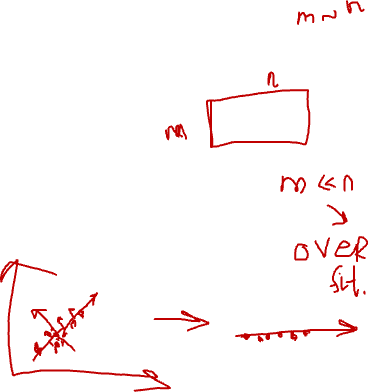 m ~ n
n
m
m << n
OVER
fit.